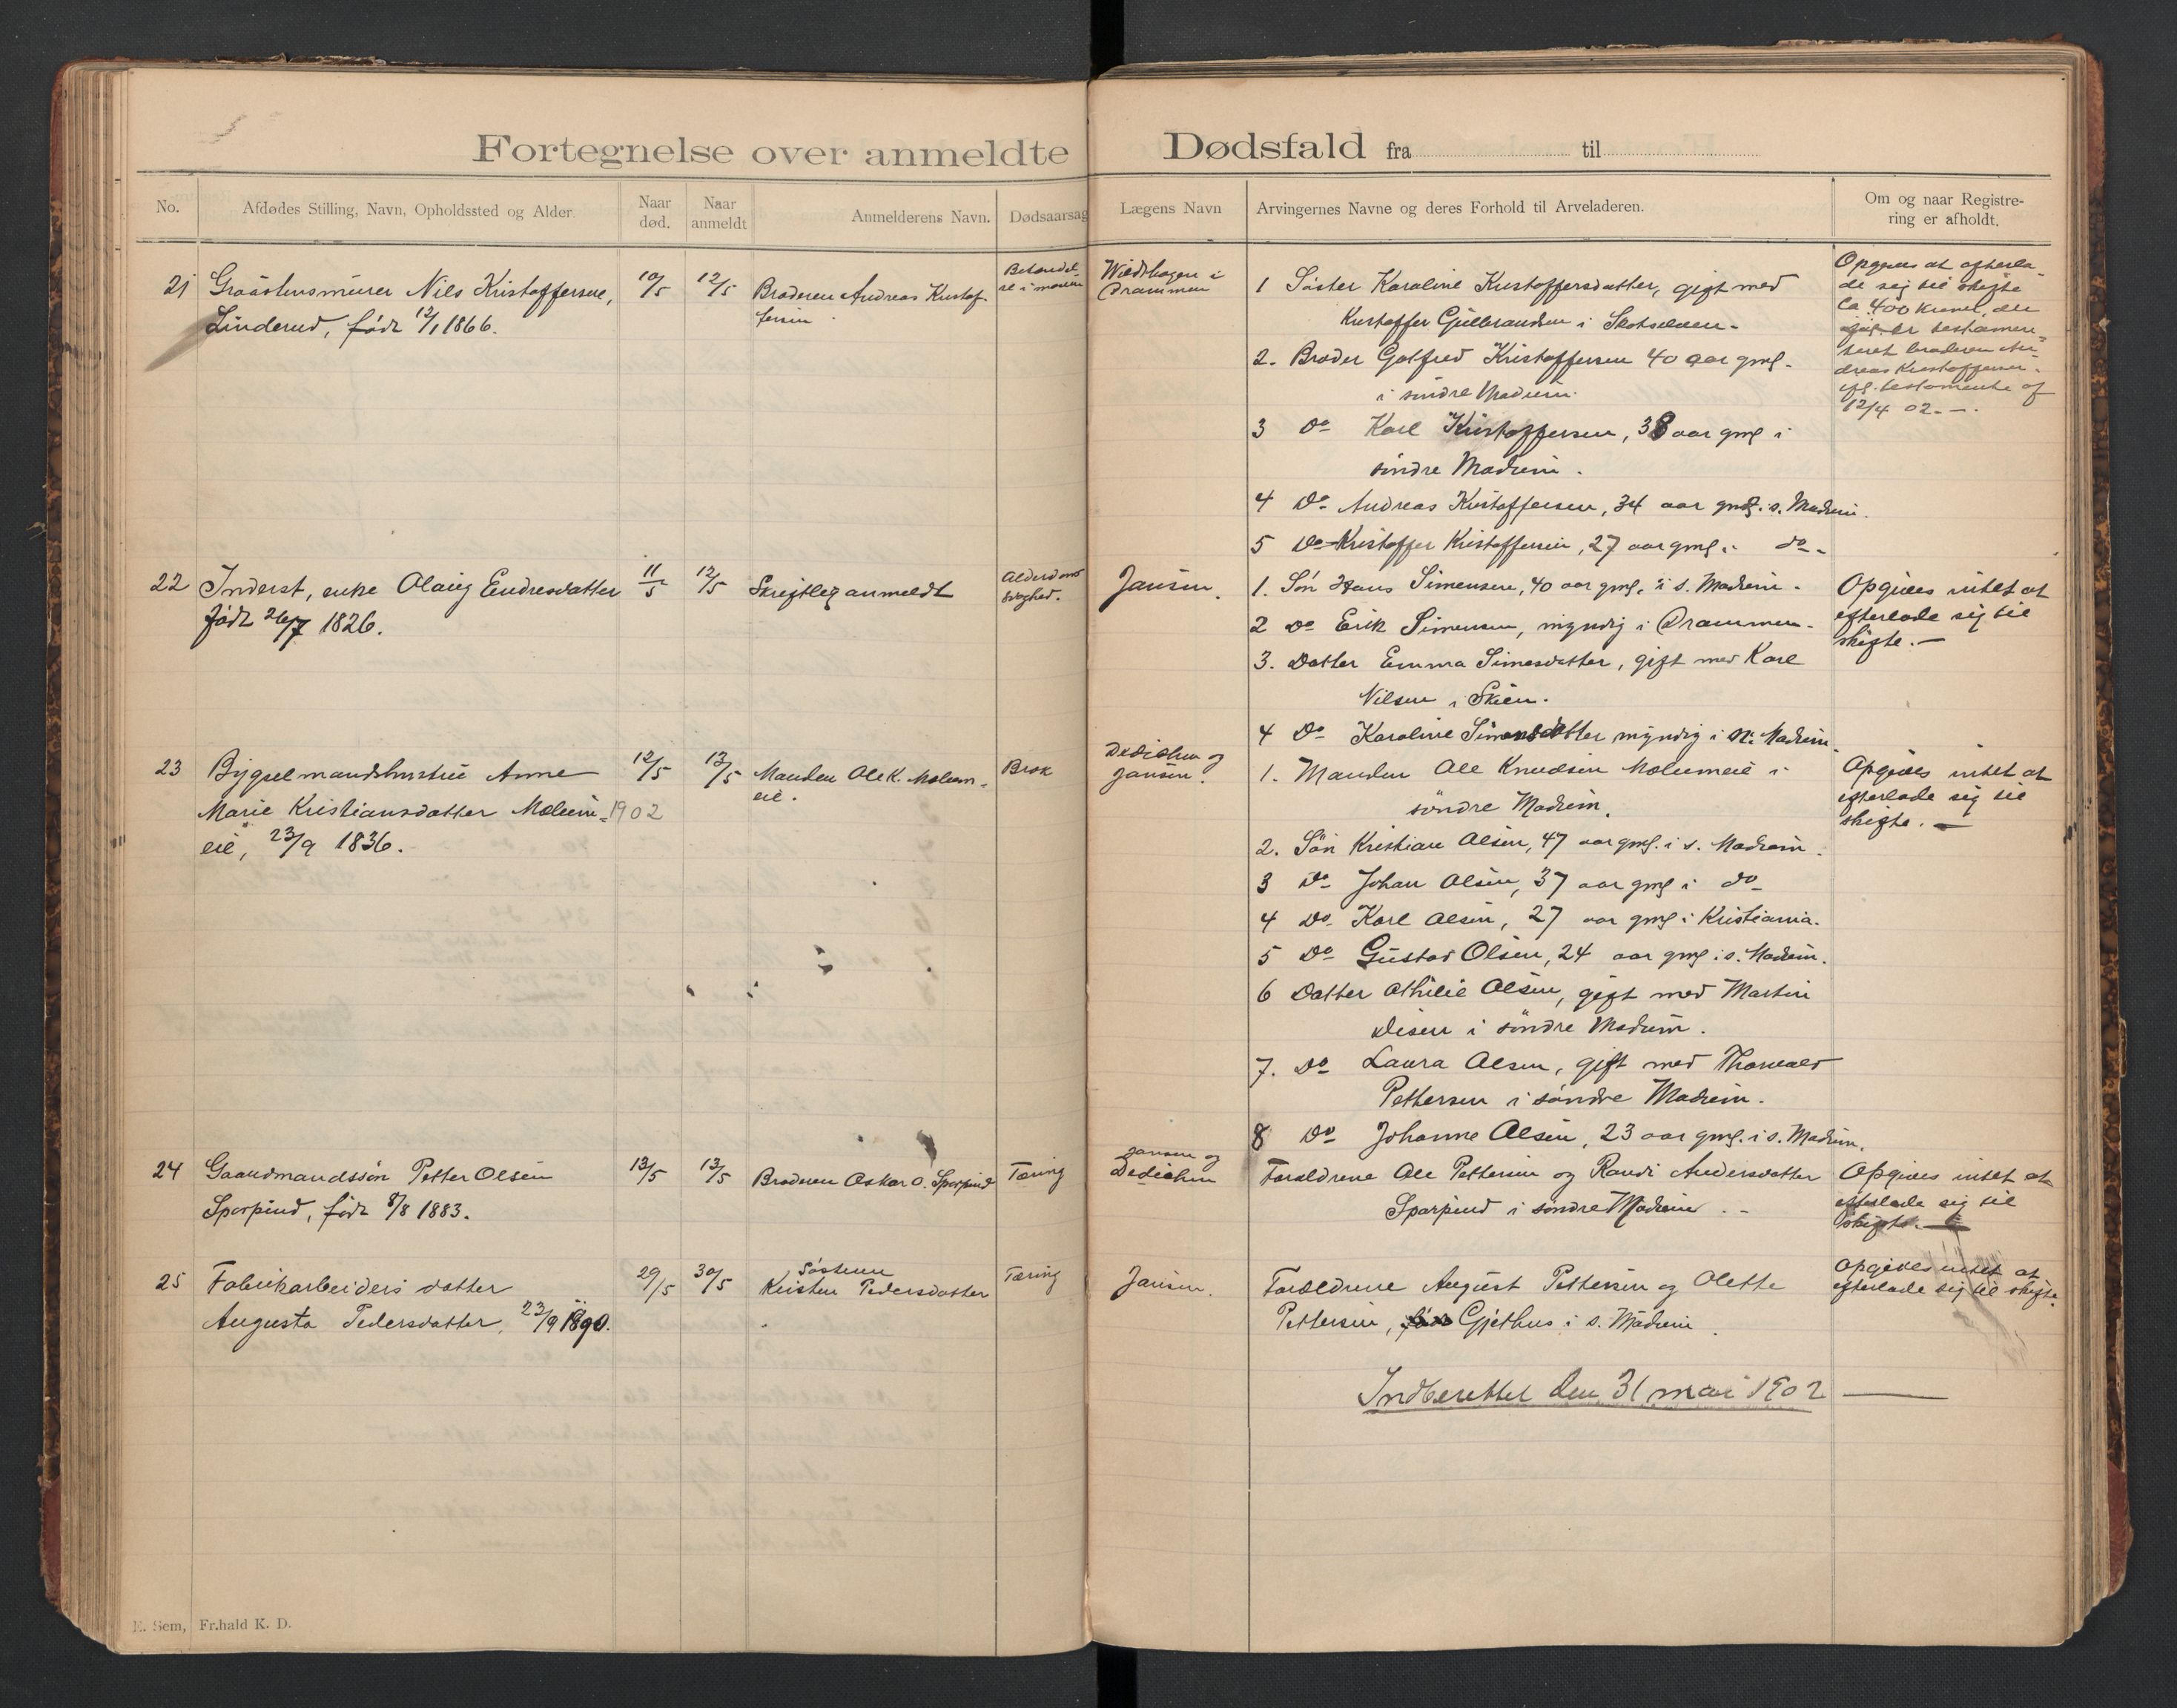 Fortegnelse over anmeldte Dødsfald fra til
No.
Afdødes Stilling, Navn, Opholdssted og Alder.
Naar død.
Naar anmeldt
Anmelderens Navn.
Dødsaarsag
Lægens Navn
Arvingernes Navne og deres Forhold til Arveladeren.
Om og naar Registre-
ring er afholdt.
21
Nils Kristoffersen,
Linderud, født 12/1 1866.
10/5
12/5
Broderen Andreas Kristof-
fersen
Wildhagen i
Drammen
1 Søster Karoline Kristoffersdatter, gift med
Kristoffer Gulbrandsen i Skotselven.
2. Broder Gotfred Kristoffersen 40 aar gml.
i søndre Modum.
3 Do Karl Kristoffersen, 38 aar gml i
søndre Modum.
4 Do Andreas Kristoffersen, 34 aar gml. i s. Modum.
5 Do Kristoffer Kristoffersen, 27 aar gml. i do.
Opgives at efterla-
de sig til skifte
ca. 400 kroner, der
er testamen-
teret broderen An-
dreas Kristoffersen.
ifl. testamente af
12/4 02.-.
22
Inderst, enke Olaug Endresdatter
født 26/7 1826.
11/5
12/5
Skriftlig anmeldt
Alderdoms
svaghed.
Jansen.
1. Søn Hans Simensen, 40 aar gml. i s. Modum.
2 Do Erik Simensen, myndig i Drammen.
3. Datter Emma Simensdatter, gift med Karl
Nilsen i Skien.
4 Do Karoline Simensdatter myndig i s. Modum.
Opgives intet at
efterlade sig til
skifte.-
23
Bygselmandshustru Anne
Marie Kristiansdatter Molum-
eie, 23/9 1836.
12/5
1902
13/5
Manden Ole K. Molum-
eie.
Brok
Dedichen og
Jansen.
1. Manden Ole Knudsen Molumeie i
søndre Modum.
2. Søn Kristian Olsen, 47 aar gml. i s. Modum.
3 Do Johan Olsen, 37 aar gml i do
4 Do Karl Olsen, 27 aar gml i Kristiania.
5 Do Gustav Olsen, 24 aar gml i s. Modum.
6 Datter Athilie Olsen, gift med Martin
Disen i søndre Modum.
7. Do Laura Olsen, gift med Thorvald
Pettersen i søndre Modum.
8 Do Johanne Olsen, 23 aar gml. i s. Modum.
Opgives intet at
efterlade sig til
skifte.-
24
Gaardmandssøn Petter Olsen
Sporpind, født 8/8 1883.
13/5
13/5
Broderen Oskar O. Sporpind
Tæring
Jansen og
Dedichen
Forældrene Ole Pettersen og Randi Andersdatter
Sporpind i søndre Modum.-
Opgives intet at
efterlade sig til
skifte.-
25
Fabrikarbeiders datter
Augusta Pedersdatter, 23/9 1890.
29/5
30/5
Søsteren
Kristen Pedersdatter
Tæring
Jansen.
Forældrene August Pettersen og Olette
Pettersen, Gjethus i s. Modum.
Opgives intet at
efterlade sig til skifte.
Indberettet den 31 mai 1902
E. Sem, Fr.hald K. D.